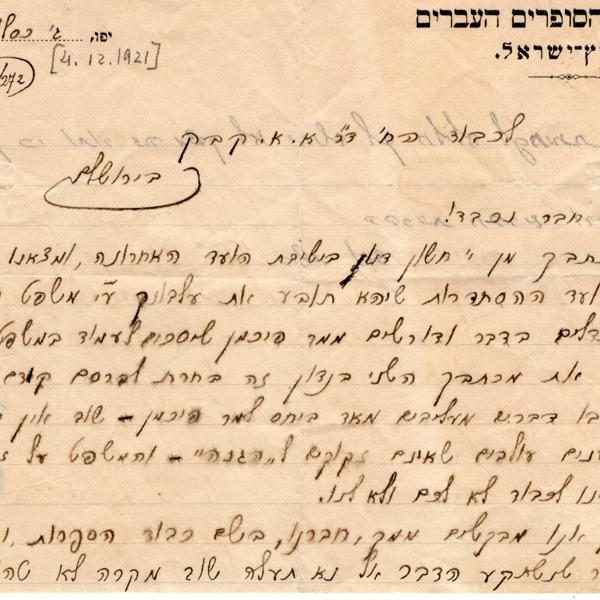 הסופרים העברים
ץ־ישראל.
יפו, ג' כסלו
[4.12.1921]
272
לכבוד הח' ד"ר א. א. קבק
בירושלים
חבר נכבד!
מכתבך מן י' חשון דנון בישיבת הועד האחרונה, ומצאנו
ועד ההסתדרות שיהא תובע את עלבונך ע"י משפט
בדבר ודורשים ממר פיכמן שיסכים לעמוד במשפט
את מכתבך השני בנדון זה בחרת לפרסם קודם
בו דברים מעליבים מאד ביחס למר פיכמן – שוב אין
עולבים שאינם זקוקים ל"הגנה" – והמשפט על
לכבוד לא לכם ולא לנו.
אנו מבקשים ממך, חברנו, בשם כבוד הספרות,
שנשתקע הדבר ואל נא תעלה שוב מקרה לא